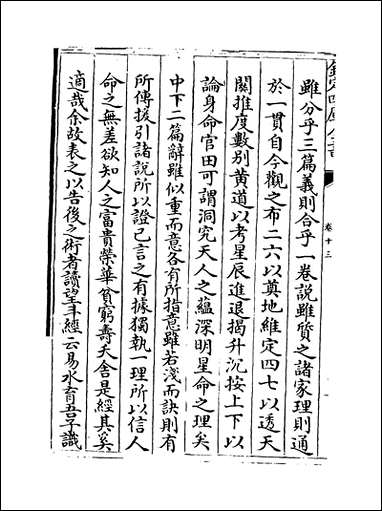 欽定四庫全書
卷十三
雖分乎三篇義則合乎一卷説雖質之諸家理則通
於一貫自今觀之布二六以奠地維定四七以透天
關推度數别黄道以考星辰進退揭升沉按上下以
論身命官田可謂洞究天人之藴深明星命之理矣
中下二篇辭雖似重而意各有所指意雖若淺而訣則有
所傳援引諸説所以證己言之有據獨執一理所以信人
命之無差欲知人之富貴榮華貧窮壽夭舍是經其奚
適哉余故表之以告後之術者讀望斗經云易水育吾子識